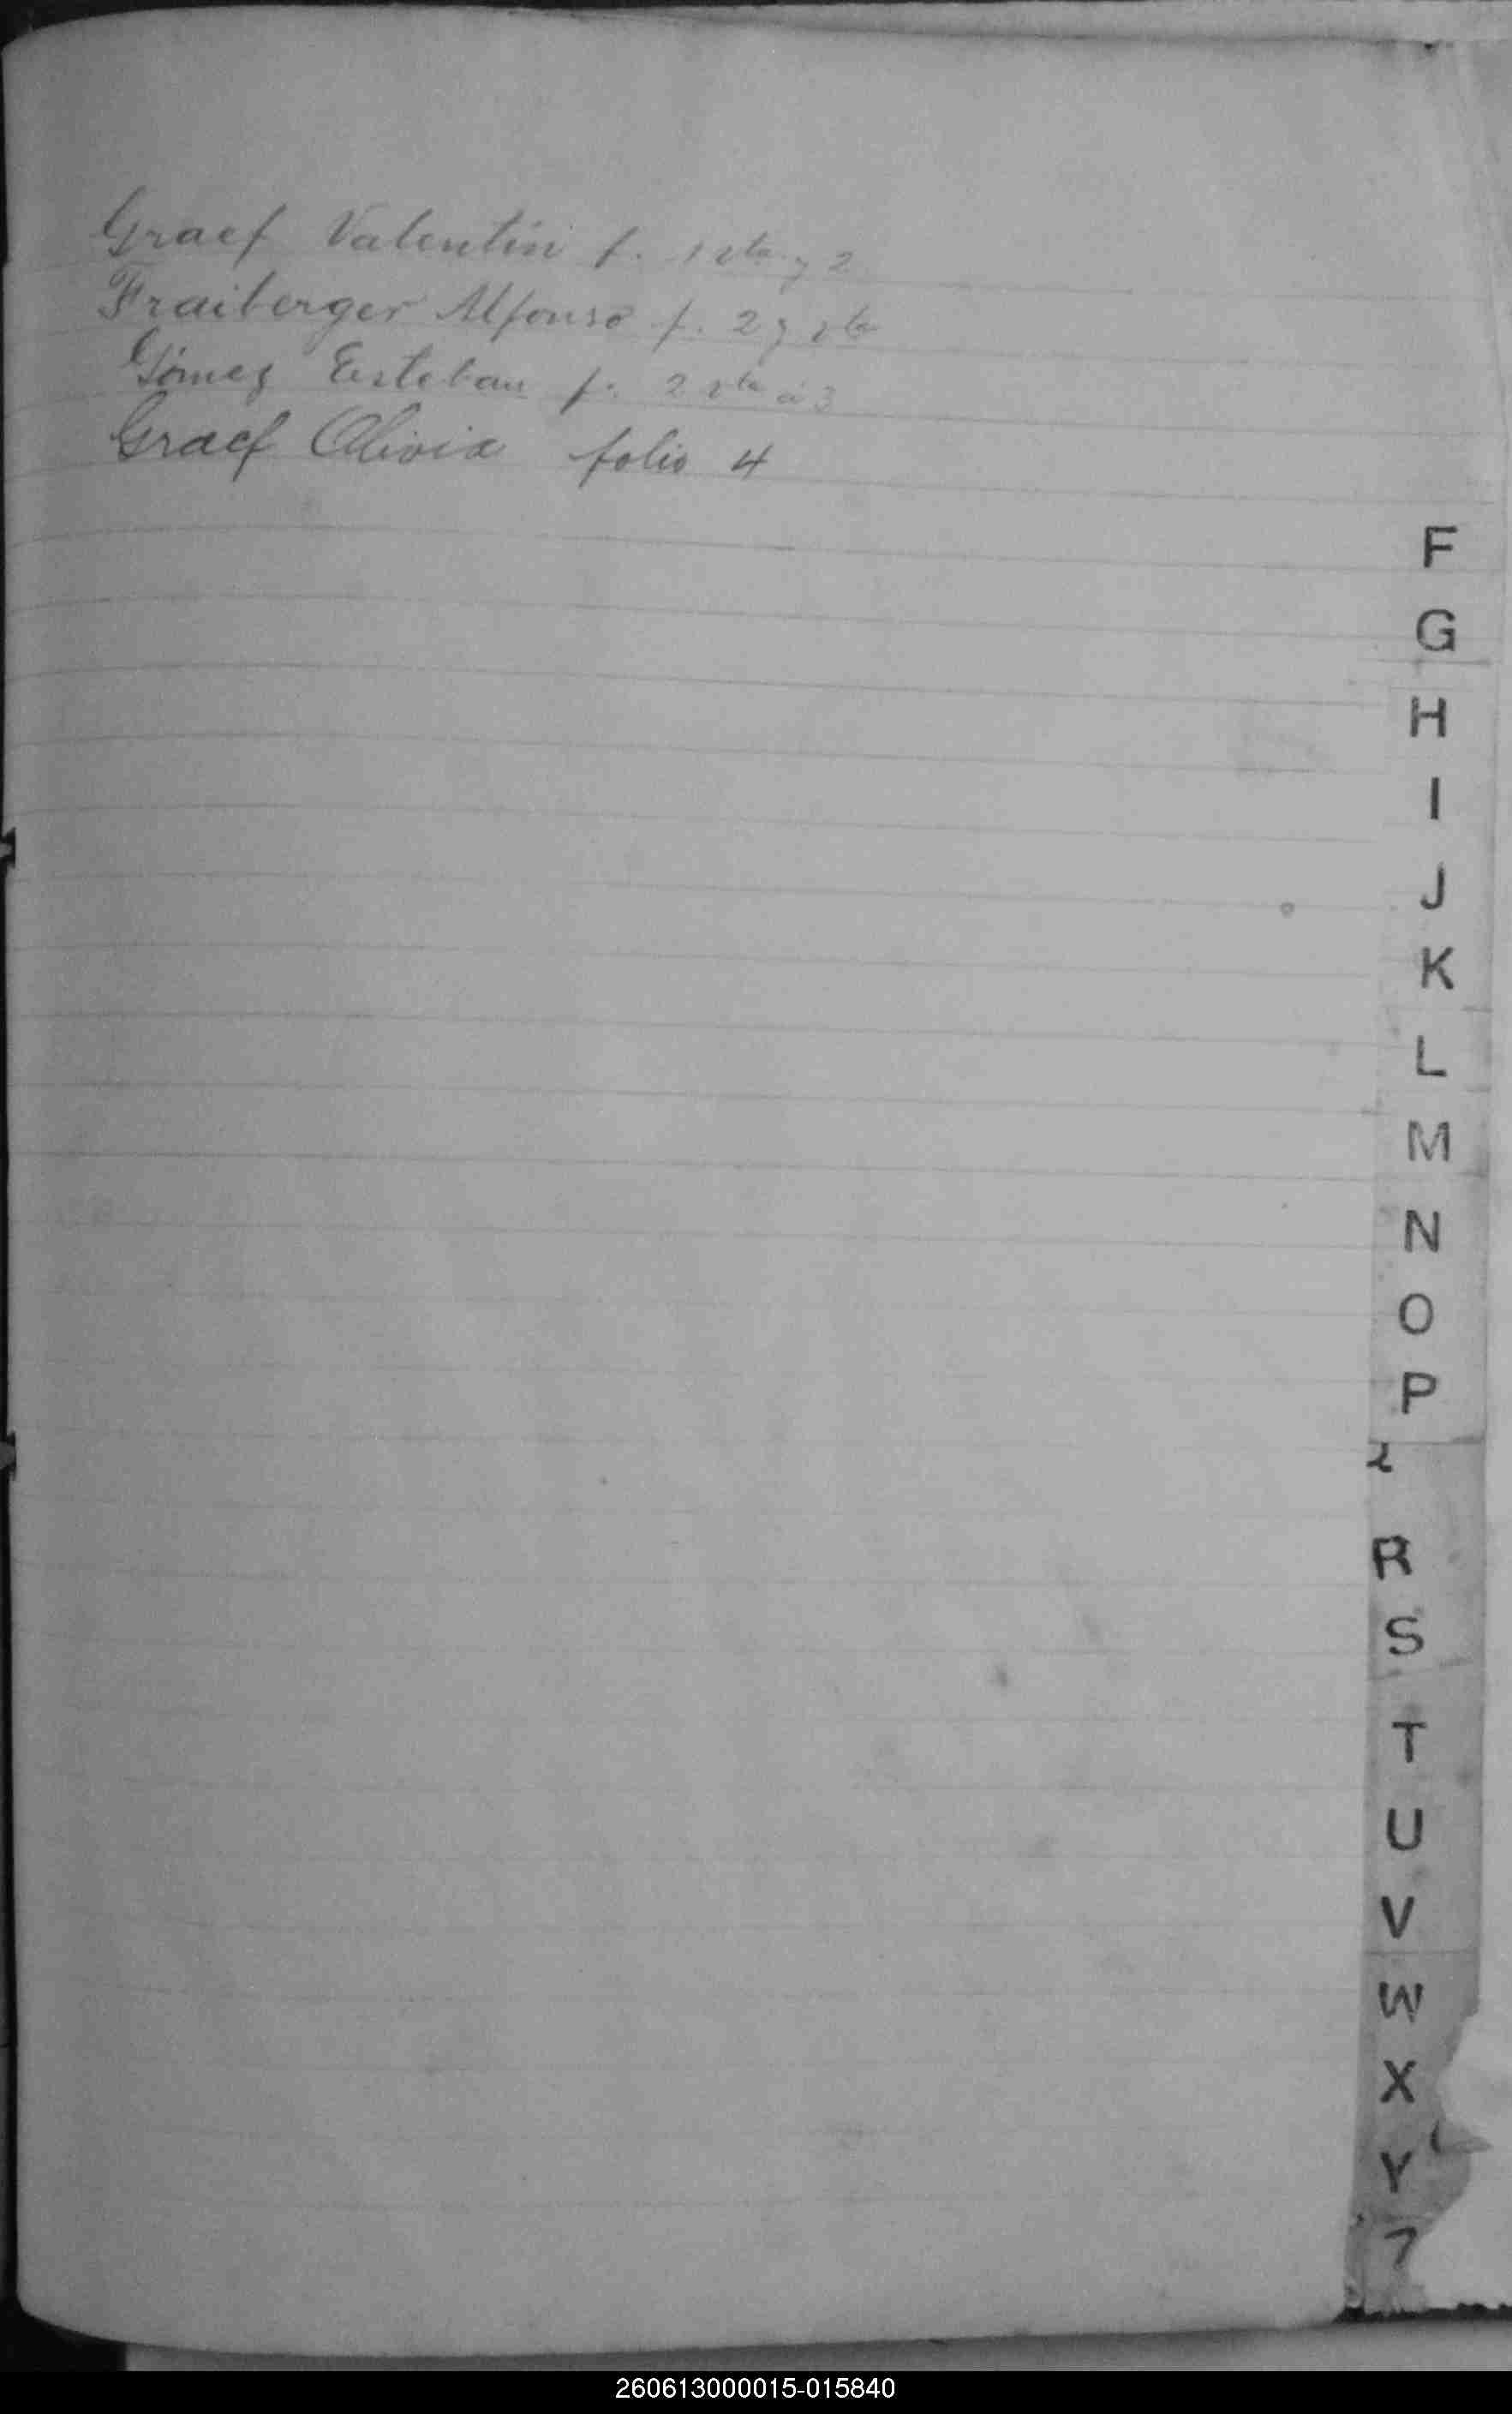 Graef Valentin f. 1 vta y 2
Fraiberger Alfonso f. 2 y vta
Gómez Esteban f. 2 vta a 3
Graef Olivia folio 4
F
G
H
I
J
K
L
M
N
O
P
R
S
T
U
V
W
X
Y
260613000015-015840